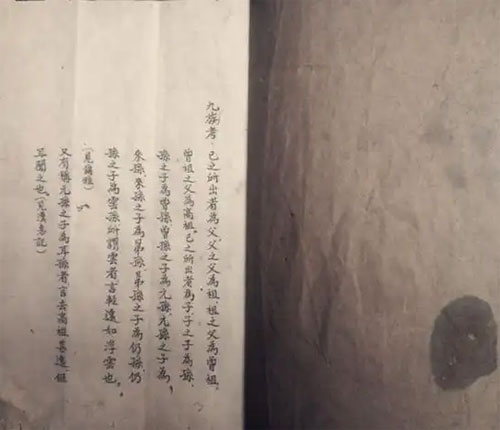 九族考、己之所出者為父、父之父為祖、祖之父為曾祖、
曾祖之父為高祖、己之所出者為子、子之子為孫、
孫之子為曾孫、曾孫之子為元孫、元孫之子為
來孫、來孫之子為昆孫、昆孫之子為仍孫、仍
孫之子為雲孫、所謂雲者言輕遠如浮雲也。
(見爾雅)
又有稱元孫之子為耳孫者言去高祖甚遠但
耳聞之也。(見漢書記)